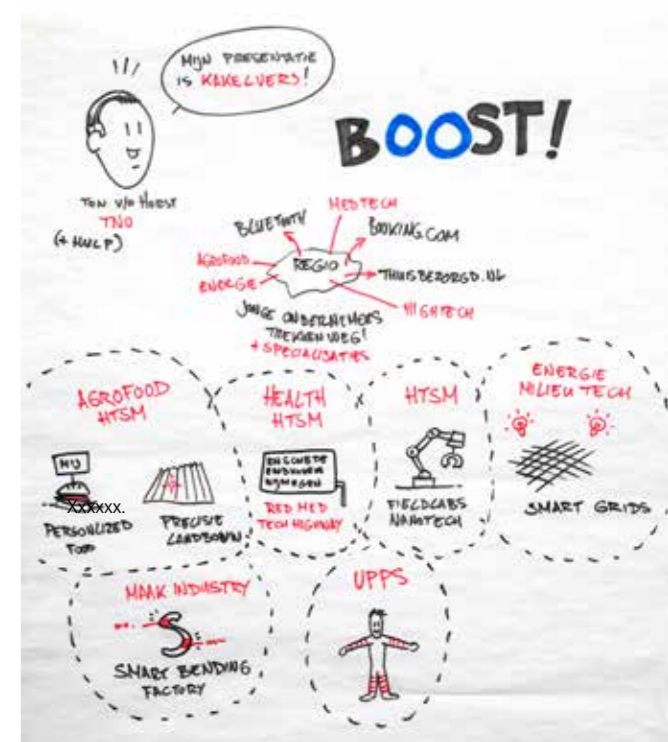 MIJN PRESENTATIE
IS KAKELVERS!
BOOST!
TON V/D HORST
TNO
(+ HULP)
MEDTECH
BLUETOOTH
BOOKING.COM
AGROFOOD
REGIO
THUISBEZORGD.NL
ENERGIE
HIGHTECH
JONGE ONDERNEMERS
TREKKEN WEG!
+ SPECIALISATIES
AGROFOOD
HTSM
MIJ
XXXXXX.
PERSONLIZED
FOOD
PRECISIE
LANDBOUW
HEALTH
HTSM
ENSCHEDE
EINDHOVEN
NIJMEGEN
RED MED
TECH HIGHWAY
HTSM
FIELDLABS
NANOTECH
ENERGIE
MILIEU TECH
SMART GRIDS
MAAK INDUSTRY
SMART BENDING
FACTORY
UPPS